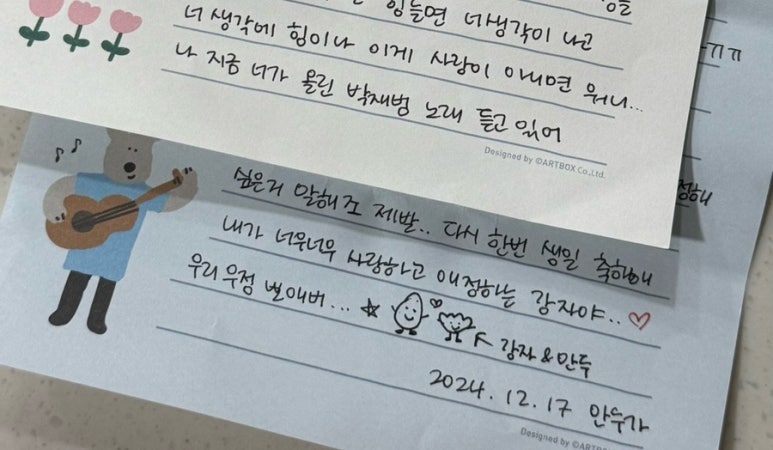 힘들면 너생각이 나고
너 생각에 힘이나 이게 사랑이 아니면 뭐니...
나 지금 너가 올린 박재범 노래 듣고 있어
Designed by ©ARTBOX Co.,Ltd.
싶은거 말해줘 제발.. 다시 한번 생일 축하해
내가 너무너무 사랑하고 애정하는 감자야..♡
우리 우정 뽀에버...☆
감자&만두
2024.12.17 만두가
Designed by ©ARTBOX